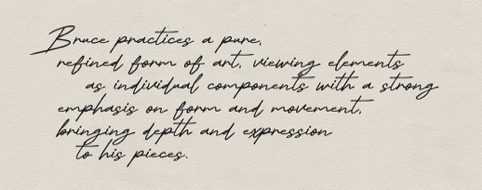 Bruce practices a pure,
refined form of art, viewing elements
as individual components with a strong
emphasis on form and movement,
bringing depth and expression
to his pieces.